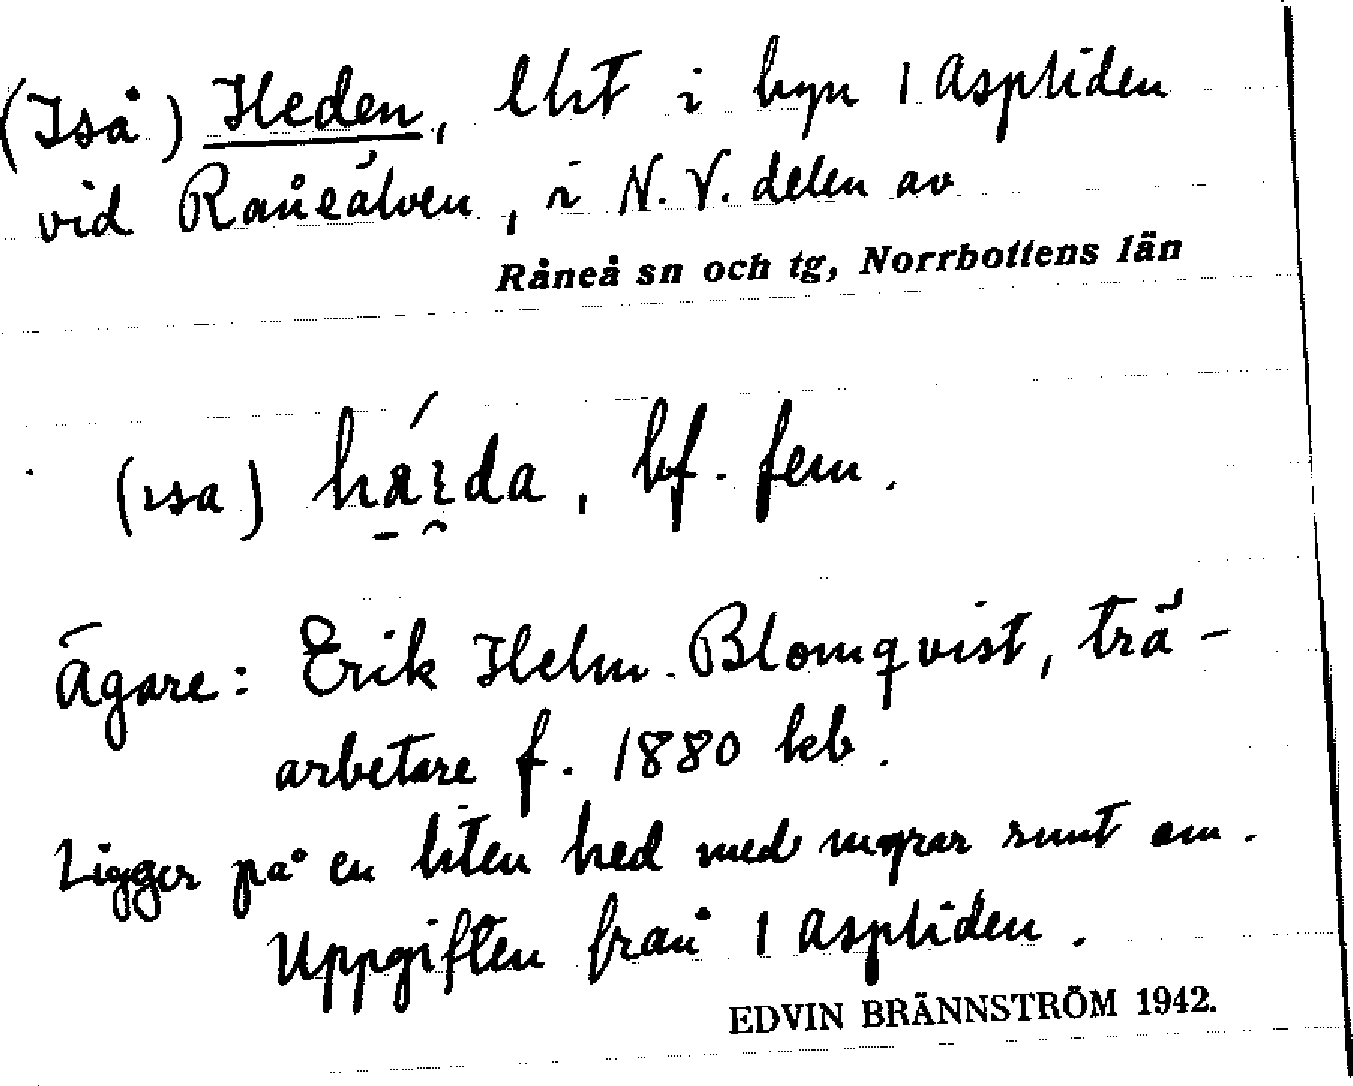 (Iså) Heden, lht i byn 1 Aspliden
vid Råneälven, i N.V. delen av
Råneå sn och tg, Norrbottens län
(ısa) bf. fem.
Ägare: Erik Helm. Blomqvist, trä-
arbetare f. 1880 kb.
Ligger på en liten hed med myrar runt om.
Uppgiften från 1 Aspliden.
EDVIN BRÄNNSTRÖM 1942.